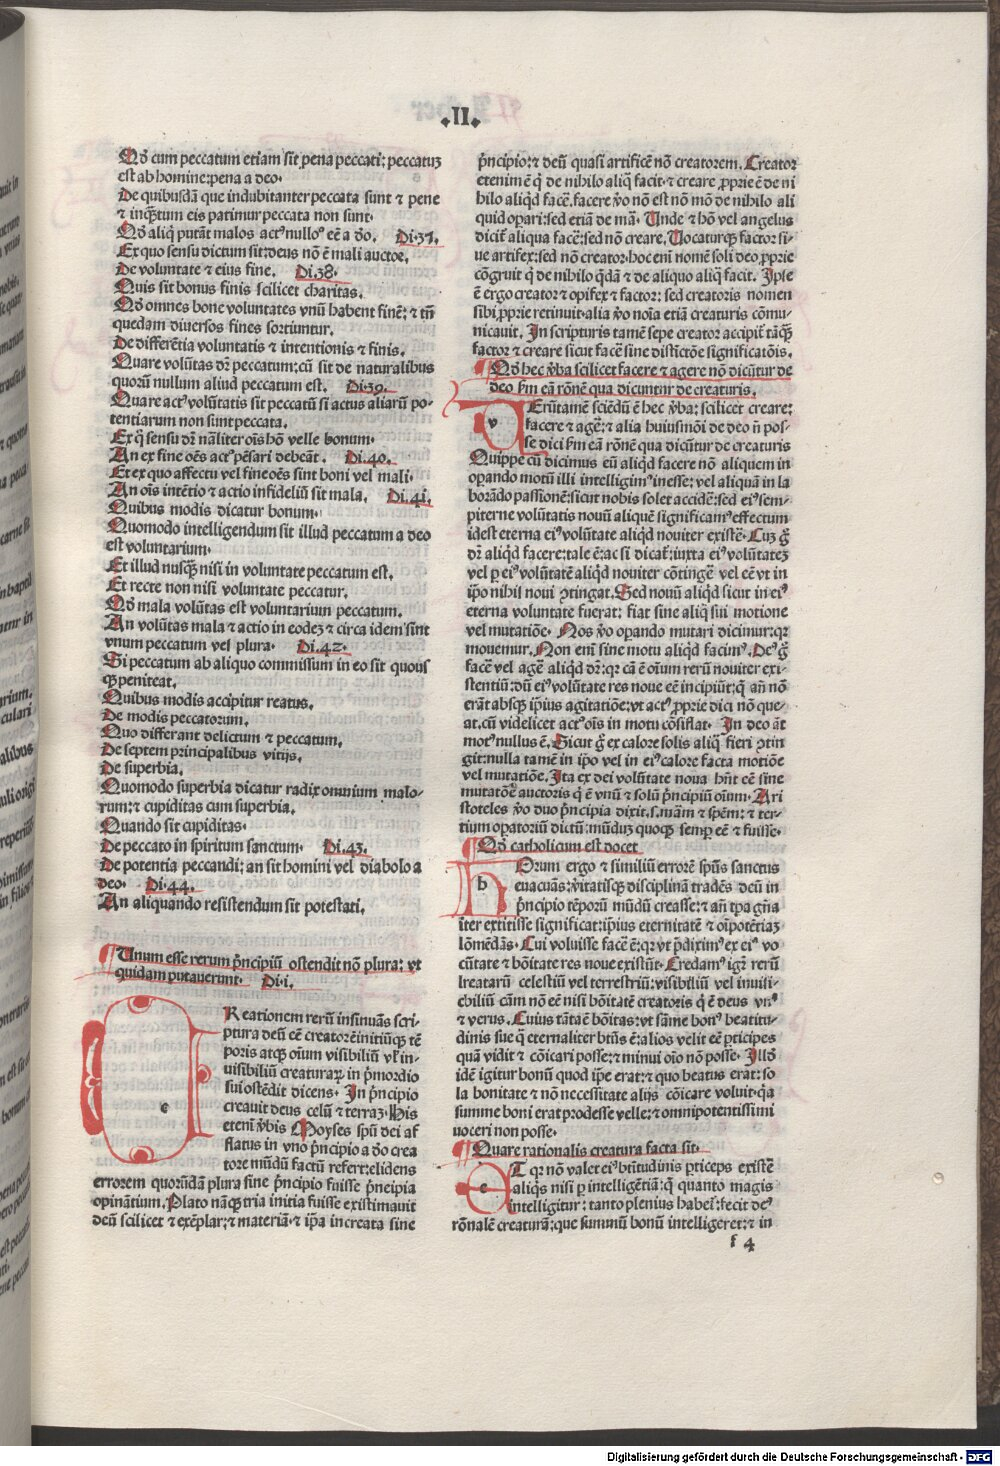 .II.
Qđ cum peccatum etiam sit pena peccati: peccatuꝫ
est ab homine: pena a deo.
De quibusdā que indubitanter peccata sunt ⁊ pene
⁊ inqꝫtum eis patimur peccata non sunt.
Qđ aliq̄ putāt malos actꝰ nulloꝰ eē a đo. Di.37.
Ex quo sensu dictum sit: deus nō ē mali auctor.
De voluntate ⁊ eius fine. Di.38.
Quis sit bonus finis scilicet charitas.
Qđ omnes bone voluntates vnū habent finē: ⁊ tn̄
quedam diuersos fines sortiuntur.
De differētia voluntatis ⁊ intentionis ⁊ finis.
Quare volūtas dr̄ peccatum: cū sit de naturalibus
quorū nullum aliud peccatum est. Di.39.
Quare actꝰ volūtatis sit peccatū si actus aliarū po-
tentiarum non sunt peccata.
Ex q̄ sensu dr̄ nāliter oīs hō velle bonum.
An ex fine oēs actꝰ pēsari debeāt. Di.40.
Et ex quo affectu vel fine oēs sint boni vel mali.
An oīs intētio ⁊ actio infideliū sit mala. Di.41.
Quibus modis dicatur bonum.
Quomodo intelligendum sit illud peccatum a deo
est voluntarium.
Et illud nusqꝫ nisi in voluntate peccatum est.
Et recte non nisi voluntate peccatur.
Qđ mala volūtas est voluntarium peccatum.
An volūtas mala ⁊ actio in eodeꝫ ⁊ circa idem sint
vnum peccatum vel plura. Di.42.
Si peccatum ab aliquo commissum in eo sit quous
qꝫ peniteat.
Quibus modis accipitur reatus.
De modis peccatorum.
Quo differant delictum ⁊ peccatum.
De septem principalibus vitijs.
De superbia.
Quomodo superbia dicatur radix omnium malo-
rum: ⁊ cupiditas cum superbia.
Quando sit cupiditas.
De peccato in spiritum sanctum. Di.43.
De potentia peccandi: an sit homini vel diabolo a
deo. Di.44.
An aliquando resistendum sit potestati.
Unum esse rerum p̄ncipiū ostendit nō plura: vt
quidam putauerunt. Di.i.
Reationem rerū insinuās scri-
ptura deū eē creatorē initiūqꝫ tē
poris atqꝫ oīum visibiliū vel in-
uisibiliū creaturaꝝ in p̄mordio
sui ostēdit dicens. In p̄ncipio
creauit deus celū ⁊ terraꝫ. His
etenī v̄bis Moyses spū dei af
flatus in vno p̄ncipio a đo crea
tore mūdū factū refert: elidens
errorem quorūdam plura sine p̄ncipio fuisse p̄ncipia
opinātium. Plato nāqꝫ tria initia fuisse existimauit
deū scilicet ⁊ exēplar: ⁊ materiā: ⁊ ip̄a increata sine
p̄ncipio: ⁊ deū quasi artificē nō creatorem. Creator
etenim ē q̄ de nihilo aliq̄ facit. ⁊ creare ꝓprie ē de ni
hilo aliqđ facē. facere v̄o nō est nō mō de nihilo ali
quid oꝑari: sed etiā de mā. Unde ⁊ hō vel angelus
dicit̄ aliqua facē: sed nō creare. Uocaturqꝫ factor si-
ue artifex: sed nō creator. hoc enī nomē soli deo ꝓprie
cōgruit q̄ de nihilo q̄dā ⁊ de aliquo aliq̄ facit. Ipse
ē ergo creator ⁊ opifex ⁊ factor: sed creatoris nomen
sibi ꝓprie retinuit. alia v̄o noīa etiā creaturis cōmu-
nicauit. In scripturis tamē sepe creator accipit̄ tāqꝫ
factor ⁊ creare sicut facē sine distictōe significatōis.
Qđ hec v̄ba scilicet facere ⁊ agere nō dicūtur de
deo s̄m eā rōnē qua dicuntur de creaturis.
v
Erūtamē sciēdū ē hec v̄ba: scilicet creare:
facere ⁊ agē: ⁊ alia huiusmōi de deo n̄ pos-
se dici s̄m eā rōnē qua dicūtur de creaturis
Quippe cū dicimus eū aliqđ facere nō aliquem in
oꝑando motū illi intelligimꝰ inesse: vel aliquā in la
borādo passionē: sicut nobis solet accidē: sed eiꝰ sem-
piterne volūtatis nouū aliquē significamꝰ effectum
idest eterna eiꝰ volūtate aliqđ nouiter existē. Cuꝫ g̊
dr̄ aliqđ facere: tale ē: ac si dicat̄: iuxta eiꝰ volūtateꝫ
vel ꝑ eiꝰ volūtatē aliqđ nouiter cōtingē vel eē vt in
ip̄o nihil noui ꝯtingat. Sed nouū aliqđ sicut in eiꝰ
eterna voluntate fuerat: fiat sine aliq̄ sui motione
vel mutatiōe. Nos v̄o oꝑando mutari dicimur: qꝛ
mouemur. Non enī sine motu aliqđ facimꝰ. Deꝰ g̊
facē vel agē aliqđ dr̄: qꝛ cā ē oīum rerū nouiter exi-
stentiū: dū eiꝰ volūtate res noue eē incipiūt: q̄ an̄ nō
erāt absqꝫ ip̄ius agitatiōe: vt actꝰ ꝓprie dici nō que-
at. cū videlicet actꝰ oīs in motu cōsistat. In deo āt
motꝰ nullus ē. Sicut g̊ ex calore solis aliq̄ fieri ꝯtin
git: nulla tamē in ip̄o vel in eiꝰ calore facta motiōe
vel mutatiōe. Ita ex dei volūtate noua hn̄t eē sine
mutatōe auctoris q̄ ē vnū ⁊ solū p̄ncipiū oīum. Ari
stoteles v̄o duo p̄ncipia dixit. s. mām ⁊ spēm: ⁊ ter-
tium oꝑatoriū dictū: mūduꝫ quoqꝫ semꝑ eē ⁊ fuisse.
Qđ catholicum est docet
h
Orum ergo ⁊ similiū errorē sp̄us sanctus
euacuās: v̄itatisqꝫ disciplinā tradēs deū in
p̄ncipio tēporū mūdū creasse: ⁊ an̄ tꝑa et̄na
līter extitisse significat: ip̄ius eternitatē ⁊ oīpotētiaꝫ
cōmēdās. Cui voluisse facē ē: qꝛ vt p̄diximꝰ ex eiꝰ vo
lūtate ⁊ bōitate res noue existūt. Credamꝰ igr̄ rerū
creatarū celestiū vel terrestriū: visibiliū vel inuisi-
biliū cām nō eē nisi bōitatē creatoris q̄ ē deus vnꝰ
⁊ verus. Cuius tāta ē bōitas: vt sūme bonꝰ beatitu-
dinis sue q̄ eternaliter bt̄us ē: alios velit eē ꝑticipes
quā vidit ⁊ cōicari posse: ⁊ minui oīo nō posse. Illđ
idē igitur bonū quod ip̄e erat: ⁊ quo beatus erat: so
la bonitate ⁊ nō necessitate alijs cōicare voluit. q̄a
summe boni erat prodesse velle: ⁊ omnipotentissimi
noceri non posse.
Quare rationalis creatura facta sit.
e
T qꝛ nō valet eiꝰ btītudinis ꝑticeps existē
aliq̄s nisi ꝑ intelligētiā: q̄ quanto magis
intelligitur: tanto plenius habet̄: fecit deꝰ
rōnalē creaturā: que summū bonū intelligeret: ⁊ in
f 4
Digitalisierung gefördert durch die Deutsche Forschungsgemeinschaft - DFG